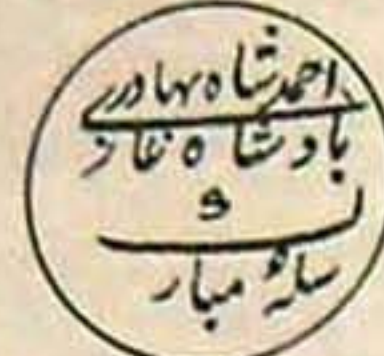 احمد شاه بهادر
بادشاه غاز
و
سکہ مبار